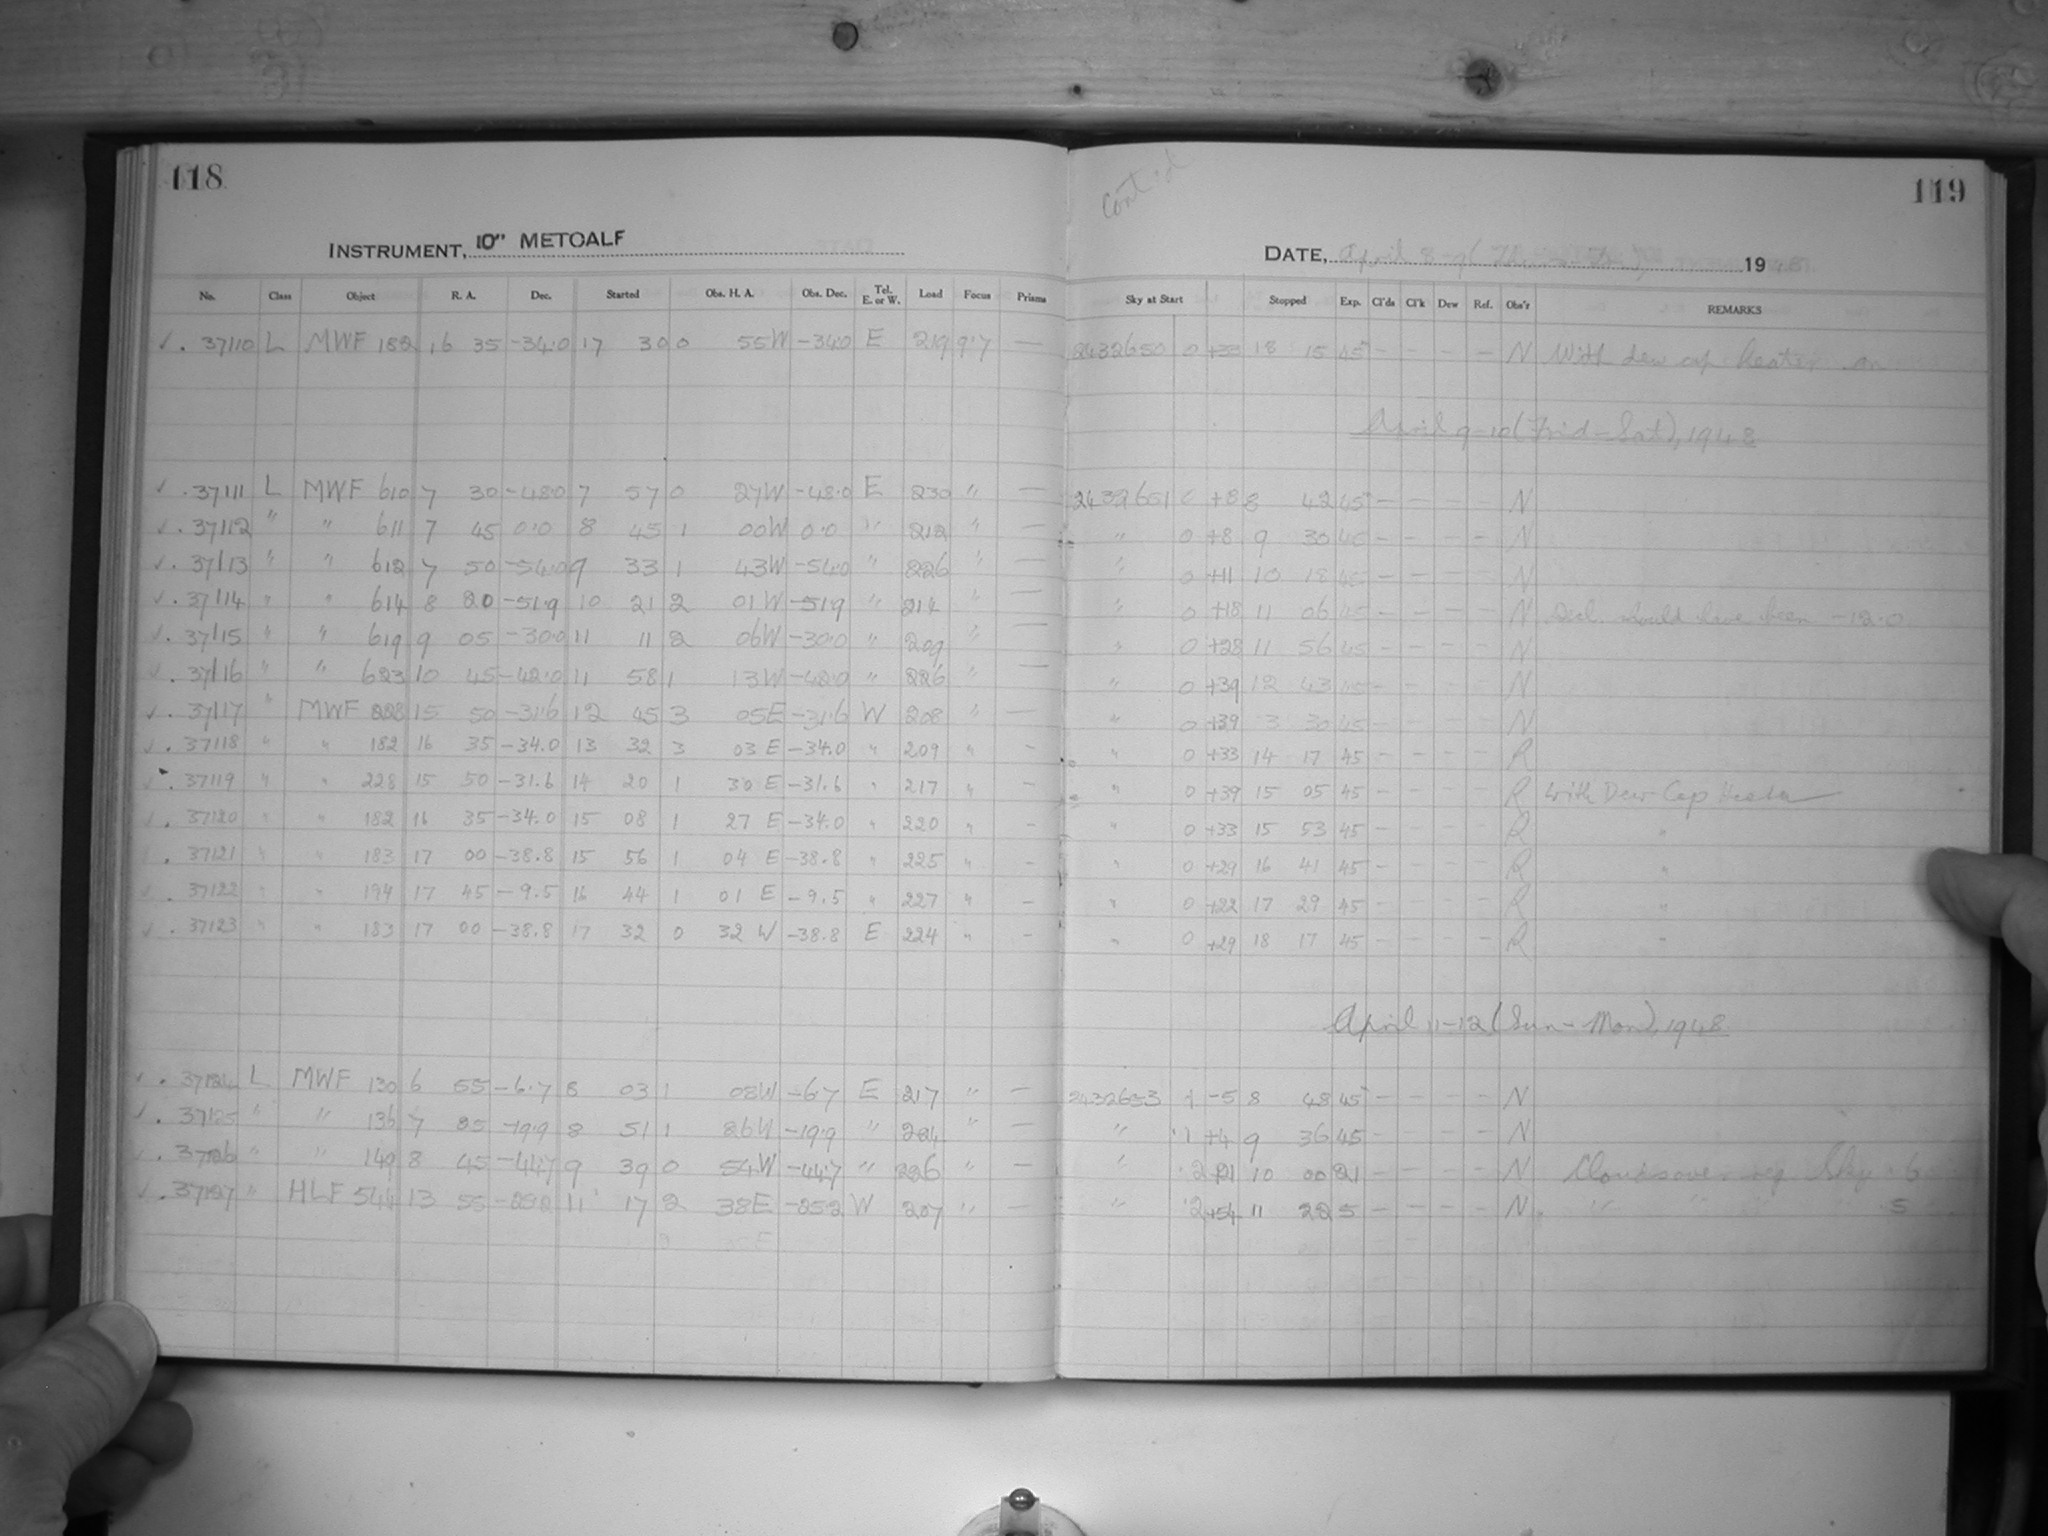 118
INSTRUMENT, 10" METCALF
No. Class Object R. A. Dec. Started Obs. H. A. Obs. Dec. Tel. E. or W. Load Focus Prisms
✓ . 37110 L MWF 182 16 35 -34.0 17 30 0 55W -34.0 E 219 9.7 —
✓ . 37111 L MWF 610 7 30 -48.0 7 57 0 27W -48.0 E 230 " —
✓ . 37112 " " 611 7 45 0.0 8 45 1 00W 0.0 " 212 " —
✓ . 37113 " " 612 7 50 -54.0 9 33 1 43W -54.0 " 226 " —
✓ . 37114 " " 614 8 20 -51.9 10 21 2 01W -51.9 " 214 " —
✓ . 37115 " " 619 9 05 -30.0 11 11 2 06W -30.0 " 209 " —
✓ . 37116 " " 623 10 45 -42.0 11 58 1 13W -42.0 " 226 " —
✓ . 37117 " MWF 228 15 50 -31.6 12 45 3 05E -31.6 W 208 " —
✓ . 37118 " " 182 16 35 -34.0 13 32 3 03 E -34.0 " 209 " —
✓ . 37119 " " 228 15 50 -31.6 14 20 1 30 E -31.6 " 217 " —
✓ . 37120 " " 182 16 35 -34.0 15 08 1 27 E -34.0 " 220 " —
✓ . 37121 " " 183 17 00 -38.8 15 56 1 04 E -38.8 " 225 " —
✓ . 37122 " " 194 17 45 -9.5 16 44 1 01 E -9.5 " 227 " —
✓ . 37123 " " 183 17 00 -38.8 17 32 0 32 W -38.8 E 224 " —
✓ . 37124 L MWF 130 6 55 -6.7 8 03 1 08W -6.7 E 217 " —
✓ . 37125 " " 136 7 25 -19.9 8 51 1 26W -19.9 " 224 " —
✓ . 37126 " " 149 8 45 -44.7 9 39 0 54W -44.7 " 226 " —
✓ . 37127 " HLF 544 13 55 -25.2 11 17 2 38E -25.2 W 207 " —
Cont'd
119
DATE, April 8-9 1948
Sky at Start Stopped Exp. Cl'ds Cl'k Dew Ref. Obs'r REMARKS
2432650 0 +33 18 15 45 - - - - N With dew cap heater on
April 9-10 (Frid-Sat), 1948
2432651 +8 8 42 45 - - - - N
" 0 +8 9 30 45 - - - - N
" 0 +11 10 18 45 - - - - N
" 0 +18 11 06 45 - - - - N Decl. should have been -12.0
" 0 +28 11 56 45 - - - - N
" 0 +39 12 43 45 - - - - N
" 0 +39 3 30 45 - - - - N
" 0 +33 14 17 45 - - - - R
" 0 +39 15 05 45 - - - - R With Dew Cap Heater
" 0 +33 15 53 45 - - - - R "
" 0 +29 16 41 45 - - - - R "
" 0 +22 17 29 45 - - - - R "
" 0 +29 18 17 45 - - - - R "
April 11-12 (Sun-Mon), 1948
2432653 .1 -5 8 48 45 - - - - N
" .1 +4 9 36 45 - - - - N
" .2 +21 10 00 21 - - - - N Clouds over reg Sky .6
" .2 +54 11 22 5 - - - - N " " " .5